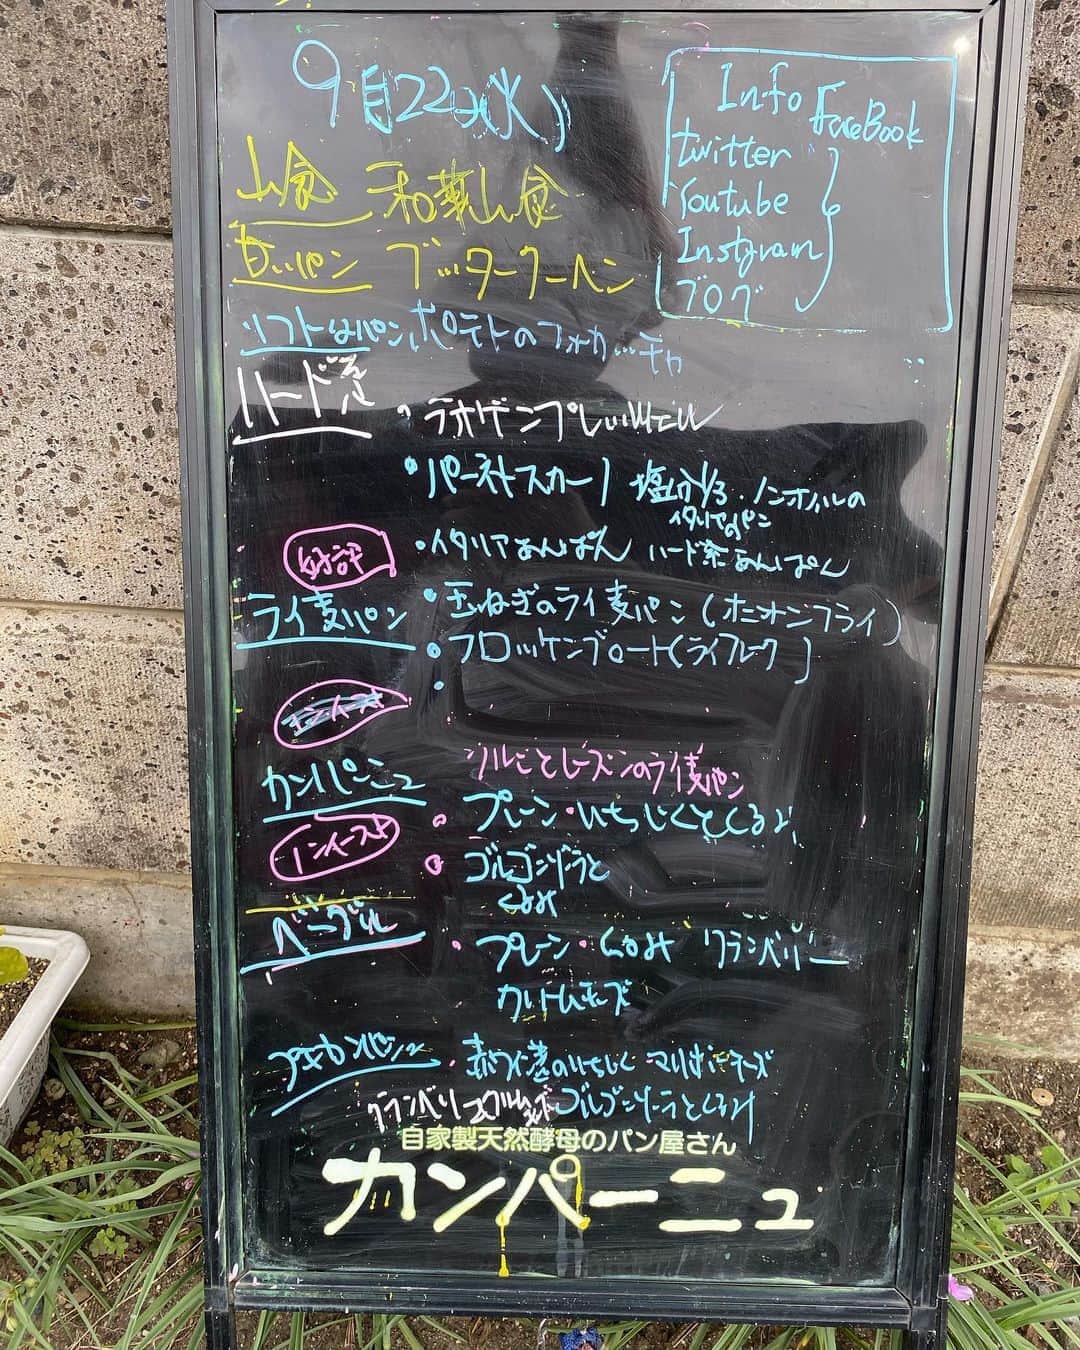 9月22日(水)
Info
FaceBook
twitter
Youtube
Instgram
ブログ
山食 和華山食
甘いパン ブッタークーヘン
ソフトなパン ポテトのフォカッチャ
ハード系
・ラオゲンプレッツェル
・パーネトスカーノ 塩分ゼロ・ノンオイルの
イタリアのパン
好評
・イタリアあんぱん ハード系あんぱん
ライ麦パン ・玉ねぎのライ麦パン(オニオンフライ)
・フロッケンブロート(ライフレーク)
クルミとレーズンのライ麦パン
カンパーニュ
・プレーン・いちじくとくるみ
ノンイースト
・ゴルゴンゾーラと
くるみ
ベーグル
・プレーン・くるみ クランベリー
カレー
チーズ
プチカンパーニュ ・赤ワイン煮のいちじく マリボーチーズ
クランベリー ゴルゴンゾーラとくるみ
自家製天然酵母のパン屋さん
カンパーニュ